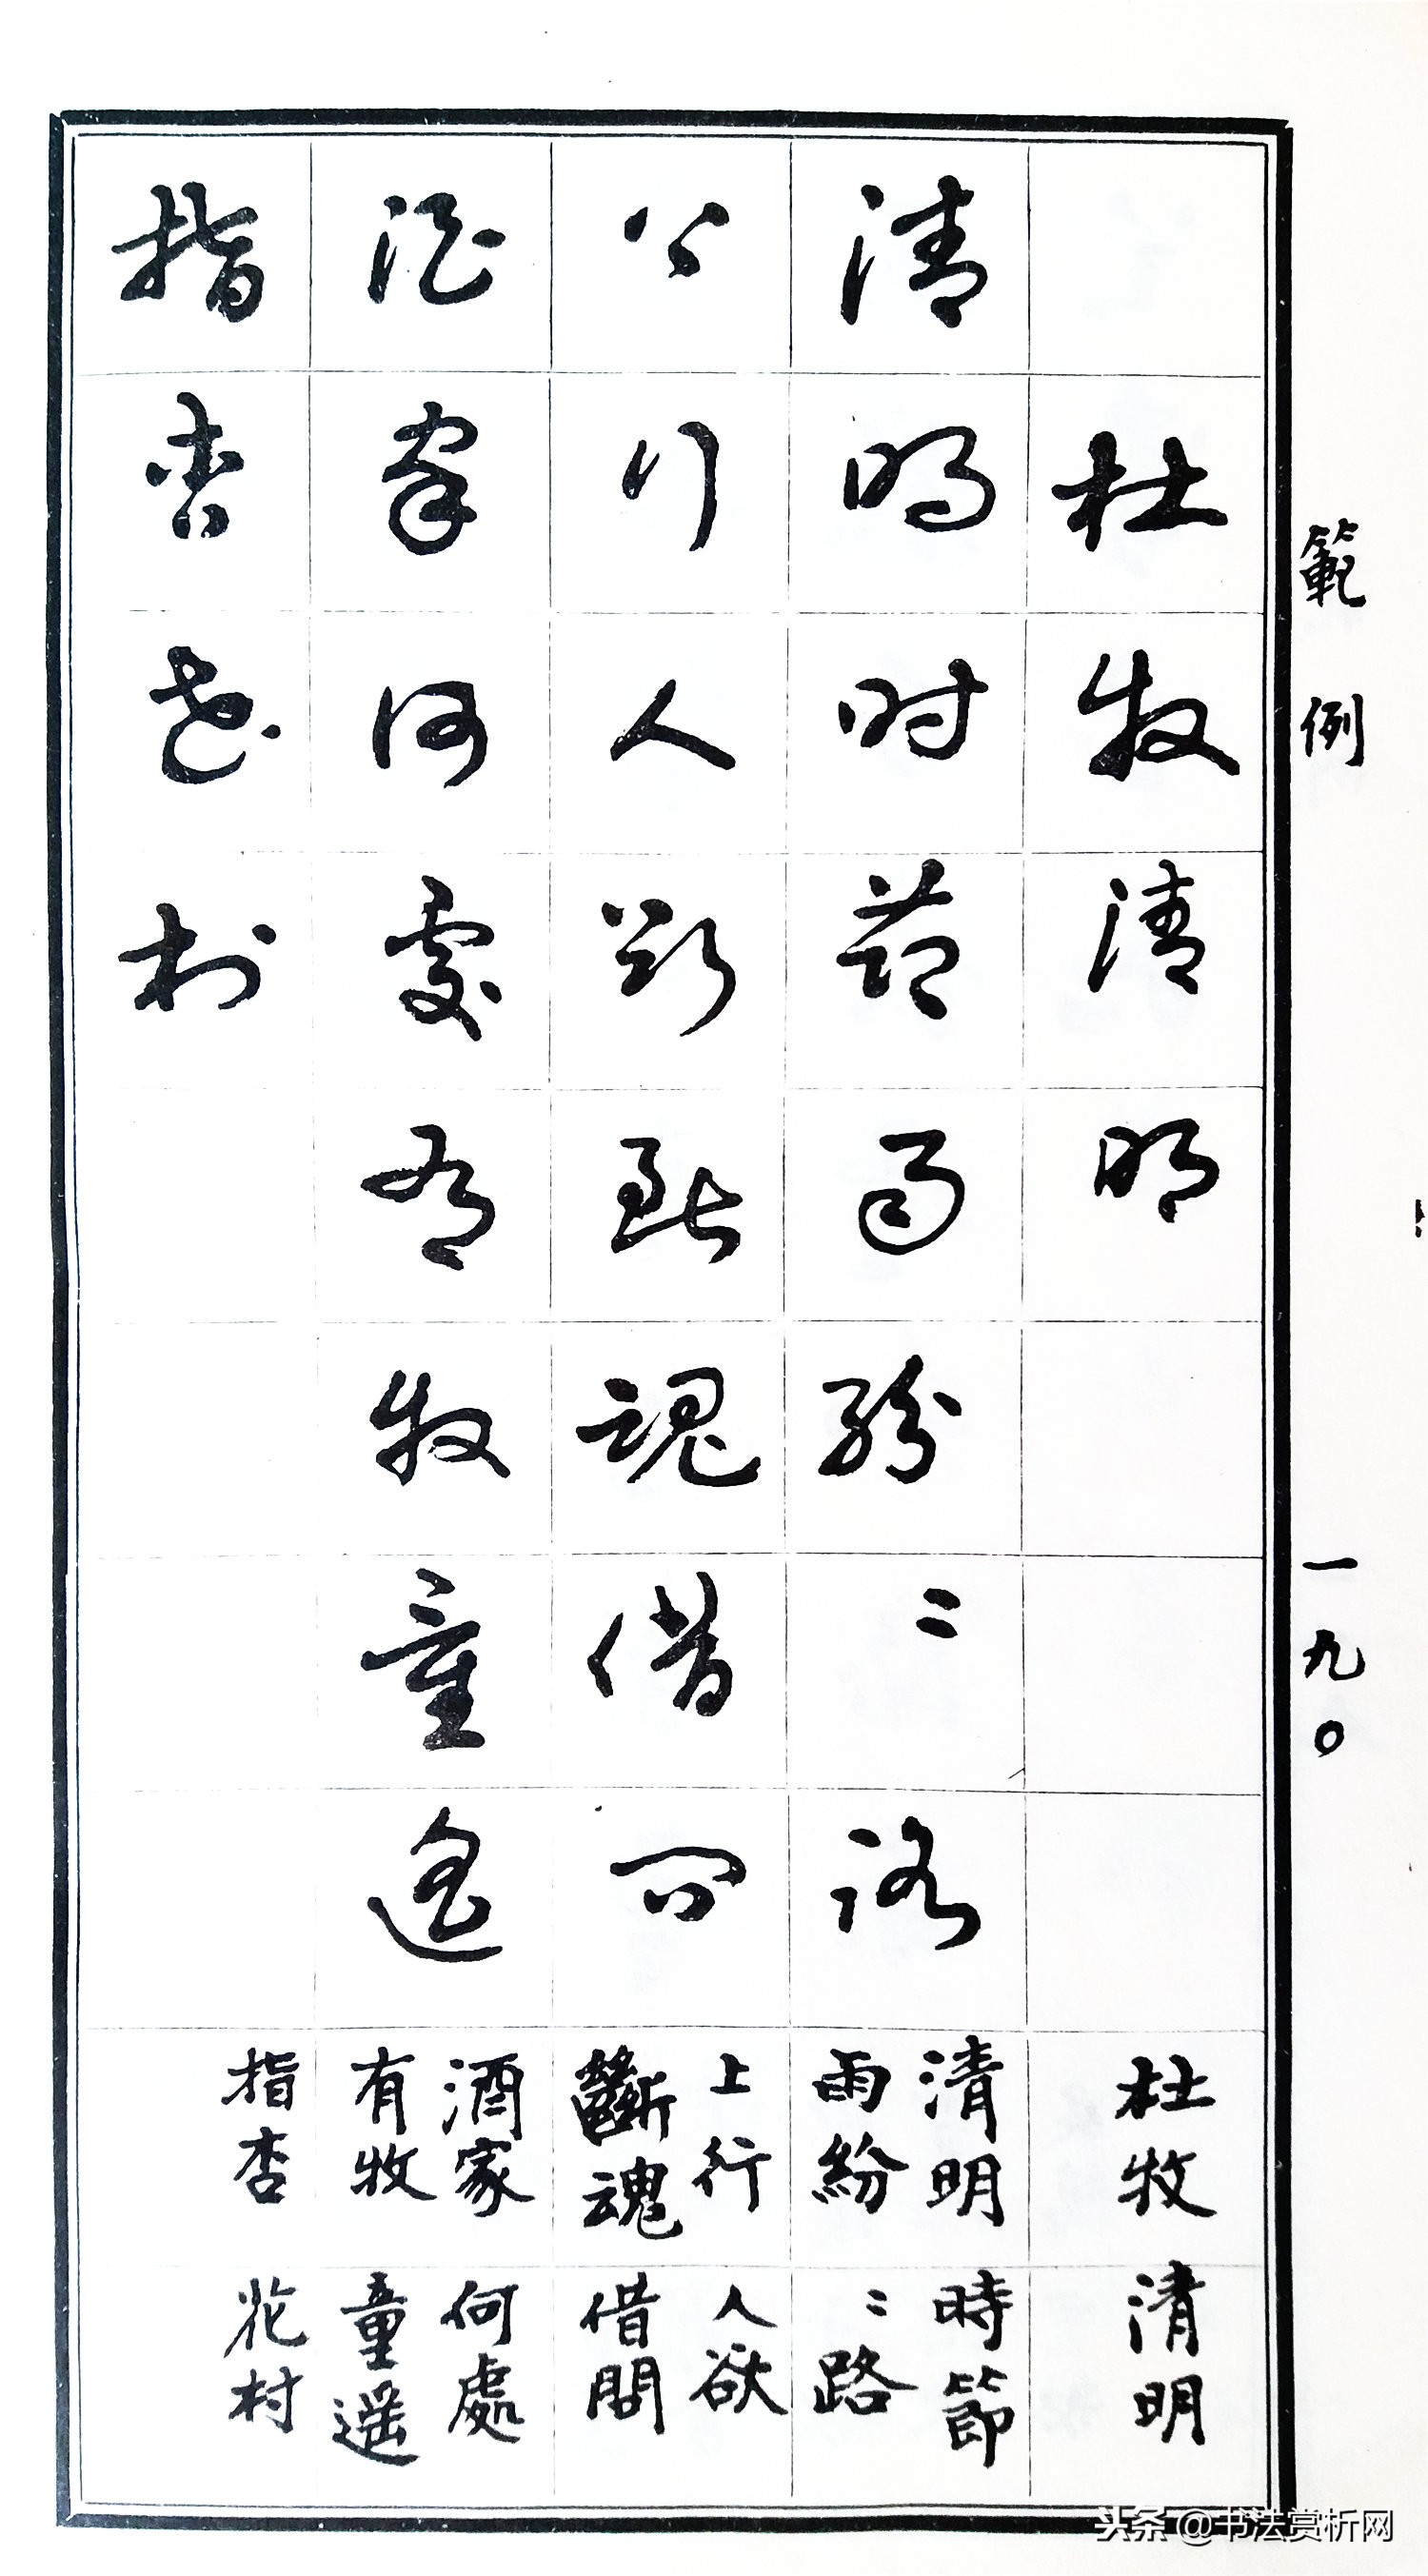 範例 一九〇
杜牧清明
清明時節雨紛〻路
上行人欲斷魂借問
酒家何處有牧童遙
指杏花村
杜牧 清明
清明 時節
雨紛 〻路
上行 人欲
斷魂 借問
酒家 何處
有牧 童遥
指杏 花村
头条 @书法赏析网